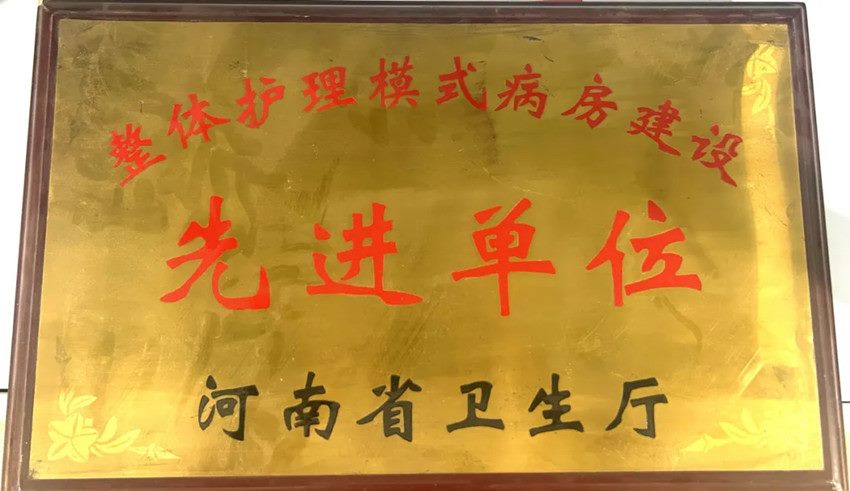 整体护理模式病房建设
先进单位
河南省卫生厅